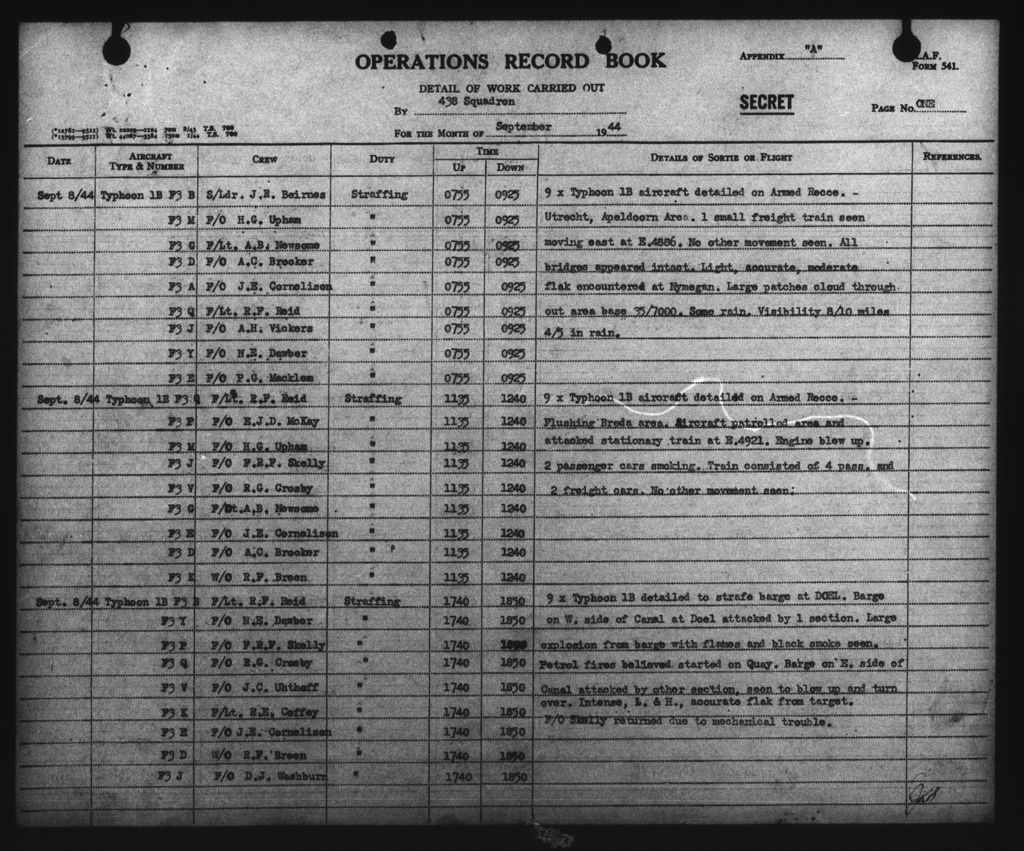 OPERATIONS RECORD BOOK
APPENDIX "A"
R.A.F.
FORM 541.
DETAIL OF WORK CARRIED OUT
By 438 Squadron
SECRET
PAGE No. ONE
FOR THE MONTH OF September 1944
DATE AIRCRAFT TYPE & NUMBER CREW DUTY TIME UP DOWN DETAILS OF SORTIE OR FLIGHT REFERENCES.
Sept 8/44 Typhoon 1B F3 B S/Ldr. J.R. Beirnes Straffing 0755 0925 9 x Typhoon 1B aircraft detailed on Armed Recce. -
F3 M F/O H.G. Upham " 0755 0925 Utrecht, Apeldoorn Area. 1 small freight train seen
F3 G F/Lt. A.B. Newsome " 0755 0925 moving east at E.4886. No other movement seen. All
F3 D F/O A.C. Brooker " 0755 0925 bridges appeared intact. Light, accurate, moderate
F3 A F/O J.E. Cornelison " 0755 0925 flak encountered at Nymegan. Large patches cloud through
F3 Q F/Lt. R.F. Reid " 0755 0925 out area base 35/7000. Some rain. Visibility 8/10 miles
F3 J F/O A.H. Vickers " 0755 0925 4/5 in rain.
F3 Y F/O N.E. Dawber " 0755 0925
F3 E F/O P.G. Macklem " 0755 0925
Sept. 8/44 Typhoon 1B F3 Q F/Lt. R.F. Reid Straffing 1135 1240 9 x Typhoon 1B aircraft detailed on Armed Recce. -
F3 P F/O E.J.D. McKay " 1135 1240 Flushing Breda area. Aircraft patrolled area and
F3 M F/O H.G. Upham " 1135 1240 attacked stationary train at E.4921. Engine blew up.
F3 J F/O F.R.F. Skelly " 1135 1240 2 passenger cars smoking. Train consisted of 4 pass. and
F3 V F/O R.G. Crosby " 1135 1240 2 freight cars. No other movement seen.
F3 G A.B. Newsome " 1135 1240
F3 E F/O J.E. Cornelison " 1135 1240
F3 D F/O A.C. Brooker " 1135 1240
F3 K W/O R.F. Breen " 1135 1240
Sept. 8/44 Typhoon 1B F3 B F/Lt. R.F. Reid Straffing 1740 1850 9 x Typhoon 1B detailed to strafe barge at DOEL. Barge
F3 Y F/O N.E. Dawber " 1740 1850 on W. side of Canal at Doel attacked by 1 section. Large
F3 P F/O F.R.F. Skelly " 1740 explosion from barge with flames and black smoke seen.
F3 Q F/O R.G. Crosby " 1740 1850 Petrol fires believed started on Quay. Barge on E. side of
F3 V F/O J.C. Uhthoff " 1740 1850 Canal attacked by other section, seen to blow up and turn
F3 K F/Lt. R.E. Coffey " 1740 1850 over. Intense, L. & H., accurate flak from target.
F3 E F/O J.E. Cornelison " 1740 1850 F/O Skelly returned due to mechanical trouble.
F3 D W/O R.F. Breen " 1740 1850
F3 J F/O D.J. Washburn " 1740 1850